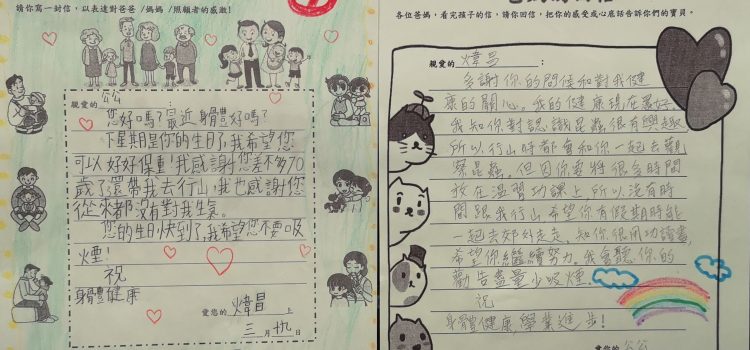 請你寫一封信，以表達對爸爸/媽媽/照顧者的感謝!
親愛的公公:
您好嗎?最近身體好嗎?
下星期是你的生日了，我希望您
可以好好保重!我感謝您差不多70
歲了還帶我去行山，我也感謝您
從來都沒有對我生氣。
您的生日快到了，我希望您不要吸
煙!
祝
身體健康
愛您的 煒昌 上
三月十九日
各位爸媽，看完孩子的信，請你回信，把你的感受或心底話告訴你們的寶貝。
親愛的 煒昌:
多謝你的問候和對我健
康的關心。我的健康現在還好，
我知你對認識昆蟲很有興趣，
所以行山時都會和你一起去觀
察昆蟲。但因你要將很多時間
放在溫習功課上所以沒有時
間跟我行山希望你有假期時能
一起去郊外走走。知你很用功讀書，
希望你繼續努力。我會聽你的
勸告盡量少吸煙。
祝
身體健康，學業進步!
愛你的 公公